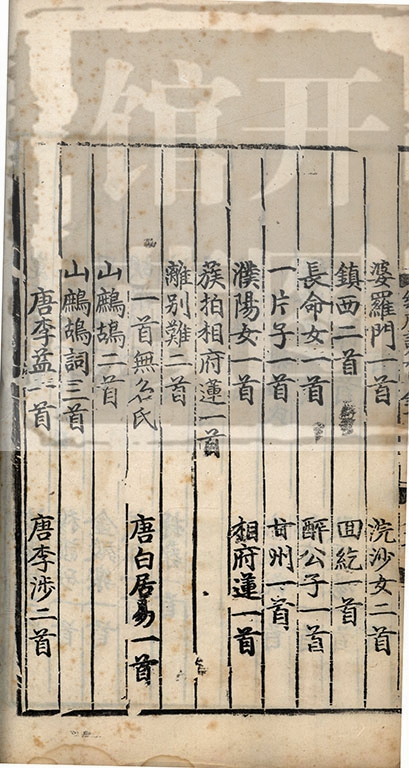 婆羅門一首 浣沙女二首
鎮西二首 回紇一首
長命女一首 醉公子一首
一片子一首 甘州一首
濮陽女一首 相府蓮一首
蔟拍相府蓮一首
離別難二首
一首無名氏 唐白居易一首
山鷓鴣二首
山鷓鴣詞三首
唐李益一首 唐李涉二首